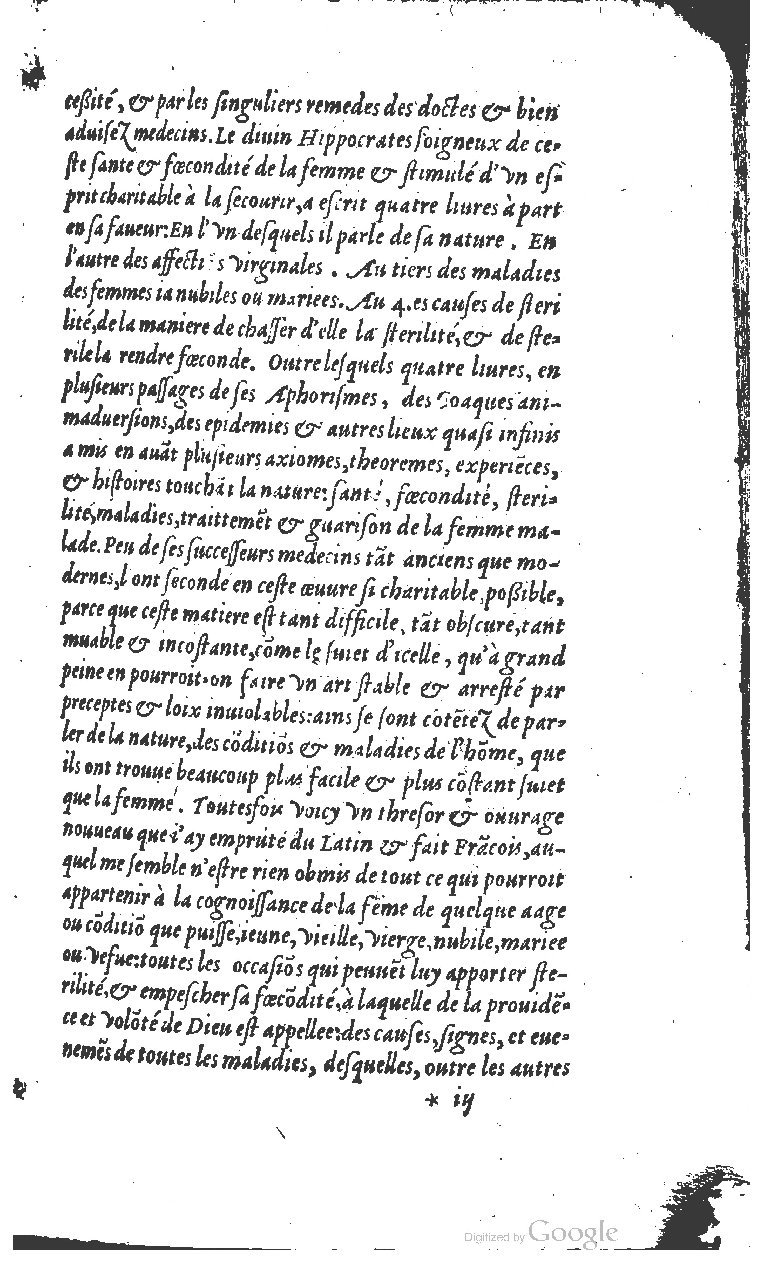 ceßité, & par les ſinguliers remedes des doctes & bien
aduiſez medecins. Le diuin Hippocrates ſoigneux de ce-
ſte ſante & fœcondité de la femme & ſtimulé d'vn eſ-
prit charitable à la ſecourir, a eſcrit quatre liures à part
en ſa faueur: En l'vn deſquels il parle de ſa nature. En
l'autre des affectiõs virginales. Au tiers des maladies
des femmes ia nubiles ou mariees. Au 4. es cauſes de ſteri
lité, de la maniere de chaſſer d'elle la ſterilité, & de ſte-
rile la rendre fœconde. Outre leſquels quatre liures, en
pluſieurs paſſages de ſes Aphoriſmes, des Coaques ani-
maduerſions, des epidemies & autres lieux quaſi infinis
a mis en auãt pluſieurs axiomes, theoremes, experiẽces,
& hiſtoires touchãt la nature: ſanté, fœcondité, ſteri-
lité, maladies, traittemẽt & guariſon de la femme ma-
lade. Peu de ſes ſucceſſeurs medecins tãt anciens que mo-
dernes, l'ont ſeconde en ceſte œuure ſi charitable, poßible,
parce que ceſte matiere eſt tant difficile, tãt obſcure, tant
muable & incoſtante, cõme le ſuiet d'icelle, qu'à grand
peine en pourroit-on faire vn art ſtable & arreſté par
preceptes & loix inuiolables: ains ſe ſont cõtẽtez de par-
ler de la nature, des cõditiõs & maladies de l'hõme, que
ils ont trouue beaucoup plus facile & plus cõſtant ſuiet
que la femme. Toutesfois voicy vn threſor & ouurage
nouueau que i'ay emprũté du Latin & fait Frãcois, au-
quel me ſemble n'eſtre rien obmis de tout ce qui pourroit
appartenir à la cognoiſſance de la fẽme de quelque aage
ou cõditiõ que puiſſe, ieune, vieille, vierge, nubile, mariee
ou vefue: toutes les occaſiõs qui peuuẽt luy apporter ſte-
rilité, & empeſcher ſa fœcõdité, à laquelle de la prouidẽ-
ce et volõté de Dieu eſt appellee: des cauſes, ſignes, et eue-
nemẽs de toutes les maladies, deſquelles, outre les autres
* iij
Digitized by Google